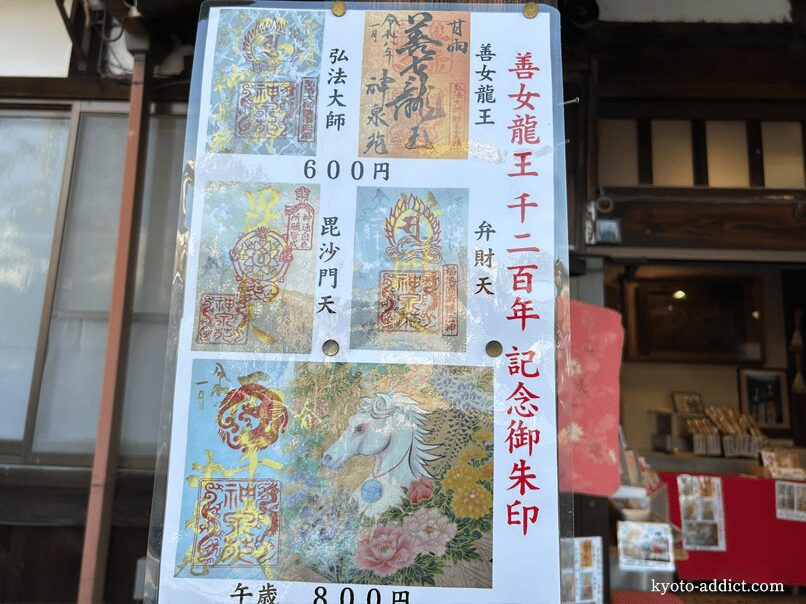 善女龍王 千二百年 記念御朱印
善女龍王
甘雨
善女龍王
神泉苑
弘法大師
600円
弁財天
毘沙門天
午歳 800円
kyoto-addict.com